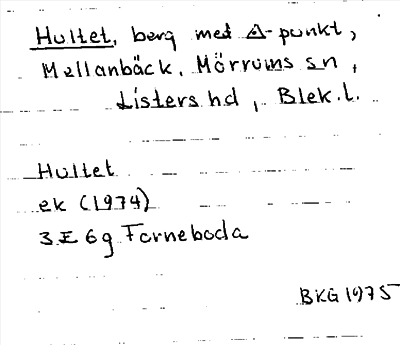 Hultet, berg med △-punkt,
Mellanbäck, Mörrums sn,
Listers hd, Blek.l.
Hultet
ek (1974)
3E 6g Forneboda
BKG 1975